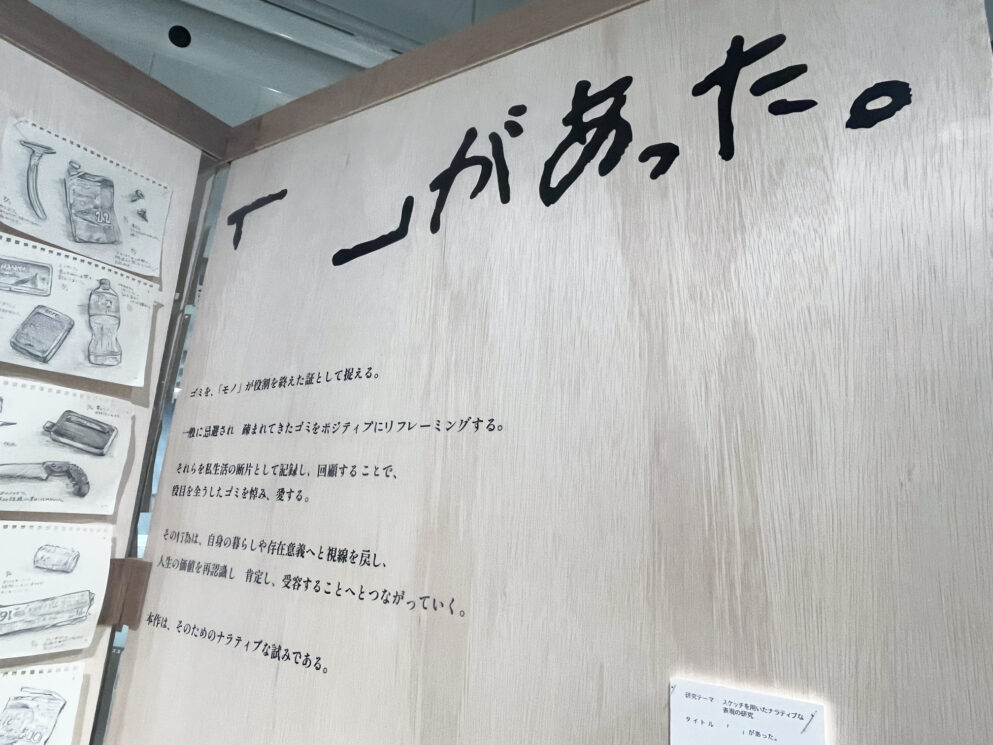 「　　」があった。
ゴミを、「モノ」が役割を終えた証として捉える。
一般に忌避され 疎まれてきたゴミをポジティブにリフレーミングする。
それらを私生活の断片として記録し、回顧することで、
役目を全うしたゴミを悼み、愛する。
その行為は、自身の暮らしや存在意義へと視線を戻し、
人生の価値を再認識し 肯定し、受容することへとつながっていく。
本作は、そのためのナラティブな試みである。
研究テーマ スケッチを用いたナラティブな
表現の研究
タイトル 「　　」があった。